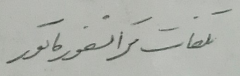 تلفات ترانسفورماتور